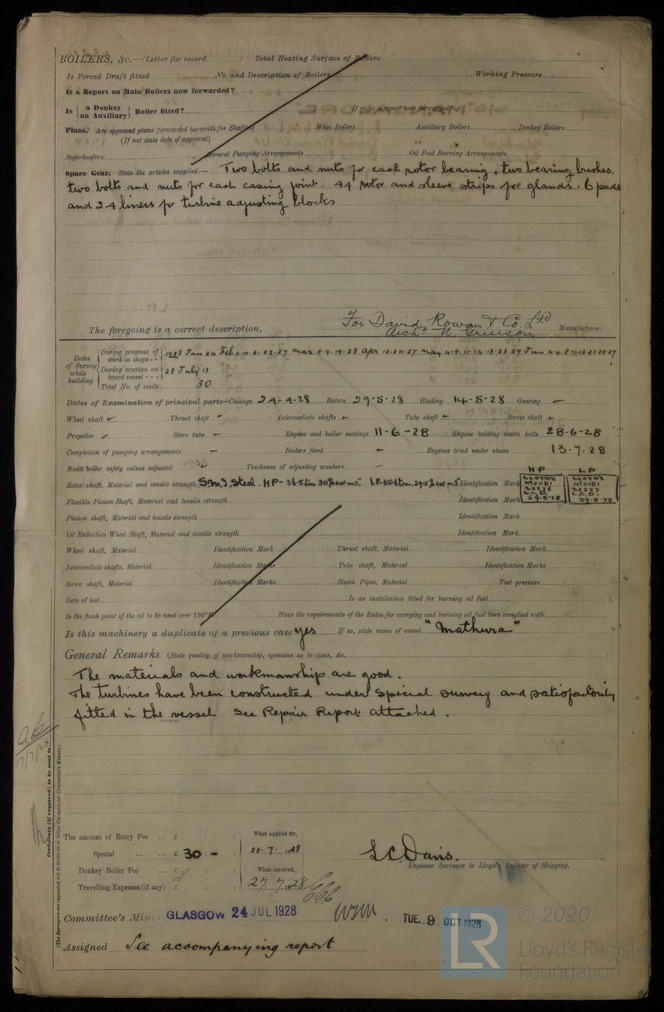 BOILERS, &c.—(Letter for record ) Total Heating Surface of Boilers
Is Forced Draft fitted No. and Description of Boilers Working Pressure
Is a Report on Main Boilers now forwarded?
Is { a Donkey / an Auxiliary } Boiler fitted? If so, is a report now forwarded?
Plans. Are approved plans forwarded herewith for Shafting Main Boilers Auxiliary Boilers Donkey Boilers
(If not state date of approval)
Superheaters General Pumping Arrangements Oil Fuel Burning Arrangements
Spare Gear. State the articles supplied:— Two bolts and nuts for each rotor bearing, two bearing bushes,
two bolts and nuts for each casing joint. 44 rotor and sleeve strips for glands. 6 pads
and 24 liners for turbine adjusting blocks
The foregoing is a correct description, For David Rowan & Co. Ltd
Archd. W. Grierson Manufacturer.
Dates of Survey while building
During progress of work in shops - - 1928 Jan 24 Feb
During erection on board vessel - - - 28 July 13
Total No. of visits 30
Dates of Examination of principal parts—Casings 24-4-28 Rotors 29-5-28 Blading 14-5-28 Gearing -
Wheel shaft - Thrust shaft - Intermediate shafts - Tube shaft - Screw shaft -
Propeller - Stern tube - Engine and boiler seatings 11-6-28 Engine holding down bolts 28-6-28
Completion of pumping arrangements - Boilers fixed - Engines tried under steam 13.7.28
Main boiler safety valves adjusted - Thickness of adjusting washers -
HP LP
Rotor shaft, Material and tensile strength S.M.I. Steel. HP- Identification Mark
LLOYD'S
L.C.D.
29-5-28
LLOYD'S
L.C.D.
29-5-28
Flexible Pinion Shaft, Material and tensile strength Identification Mark
Pinion shaft, Material and tensile strength Identification Mark
1st Reduction Wheel Shaft, Material and tensile strength Identification Mark
Wheel shaft, Material Identification Mark Thrust shaft, Material Identification Mark
Intermediate shafts, Material Identification Marks Tube shaft, Material Identification Marks
Screw shaft, Material Identification Marks Steam Pipes, Material Test pressure
Date of test Is an installation fitted for burning oil fuel
Is the flash point of the oil to be used over 150°F. Have the requirements of the Rules for carrying and burning oil fuel been complied with
Is this machinery a duplicate of a previous case yes If so, state name of vessel "Mathura"
General Remarks (State quality of workmanship, opinions as to class, &c.
The materials and workmanship are good.
The turbines have been constructed under special survey and satisfactorily
fitted in the vessel See Repair Report attached.
The amount of Entry Fee ... £ When applied for,
Special ... ... £ 30 -
Donkey Boiler Fee ... £ When received,
Travelling Expenses (if any) £ 27.7.28
L.C. Davis.
Engineer Surveyor to Lloyd's Register of Shipping.
Committee's Minute GLASGOW 24 JUL 1928 TUE. 9 OCT 1928
Assigned See accompanying report
LR © 2020
Lloyd's Register
Foundation